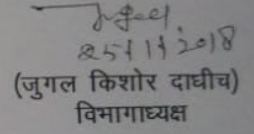 25/11/2018
(जुगल किशोर दाधीच)
विभागाध्यक्ष